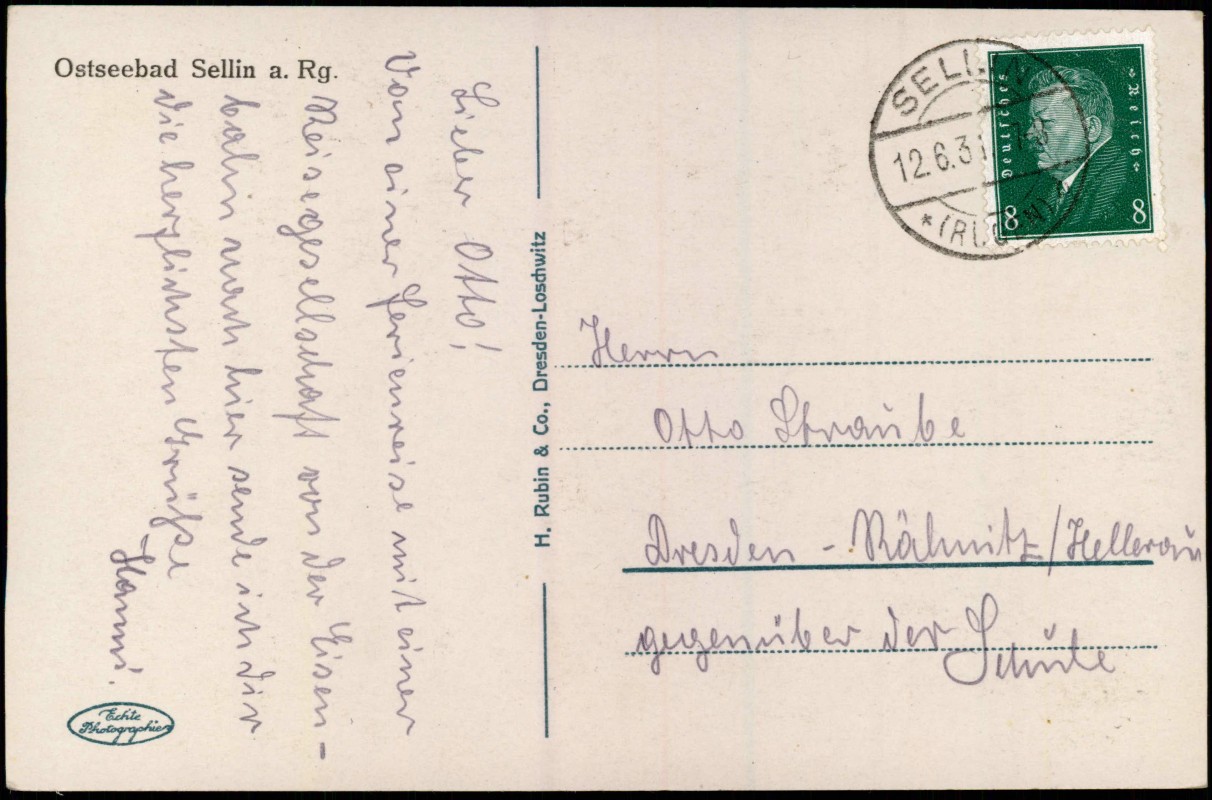 Ostseebad Sellin a. Rg.
Lieber Otto!
Von einer Ferienreise mit einer
Reisegesellschaft von der Eisen-
bahn nach hier sende ich dir
die herzlichsten Grüße
Hanni.
Echte
Photographie
H. Rubin & Co., Dresden-Loschwitz
SELLIN
12.6.31
* (RÜGEN)
Deutsches Reich
8 8
Herrn
Otto Straube
Dresden - Rähnitz/Hellerau
gegenüber der Schule